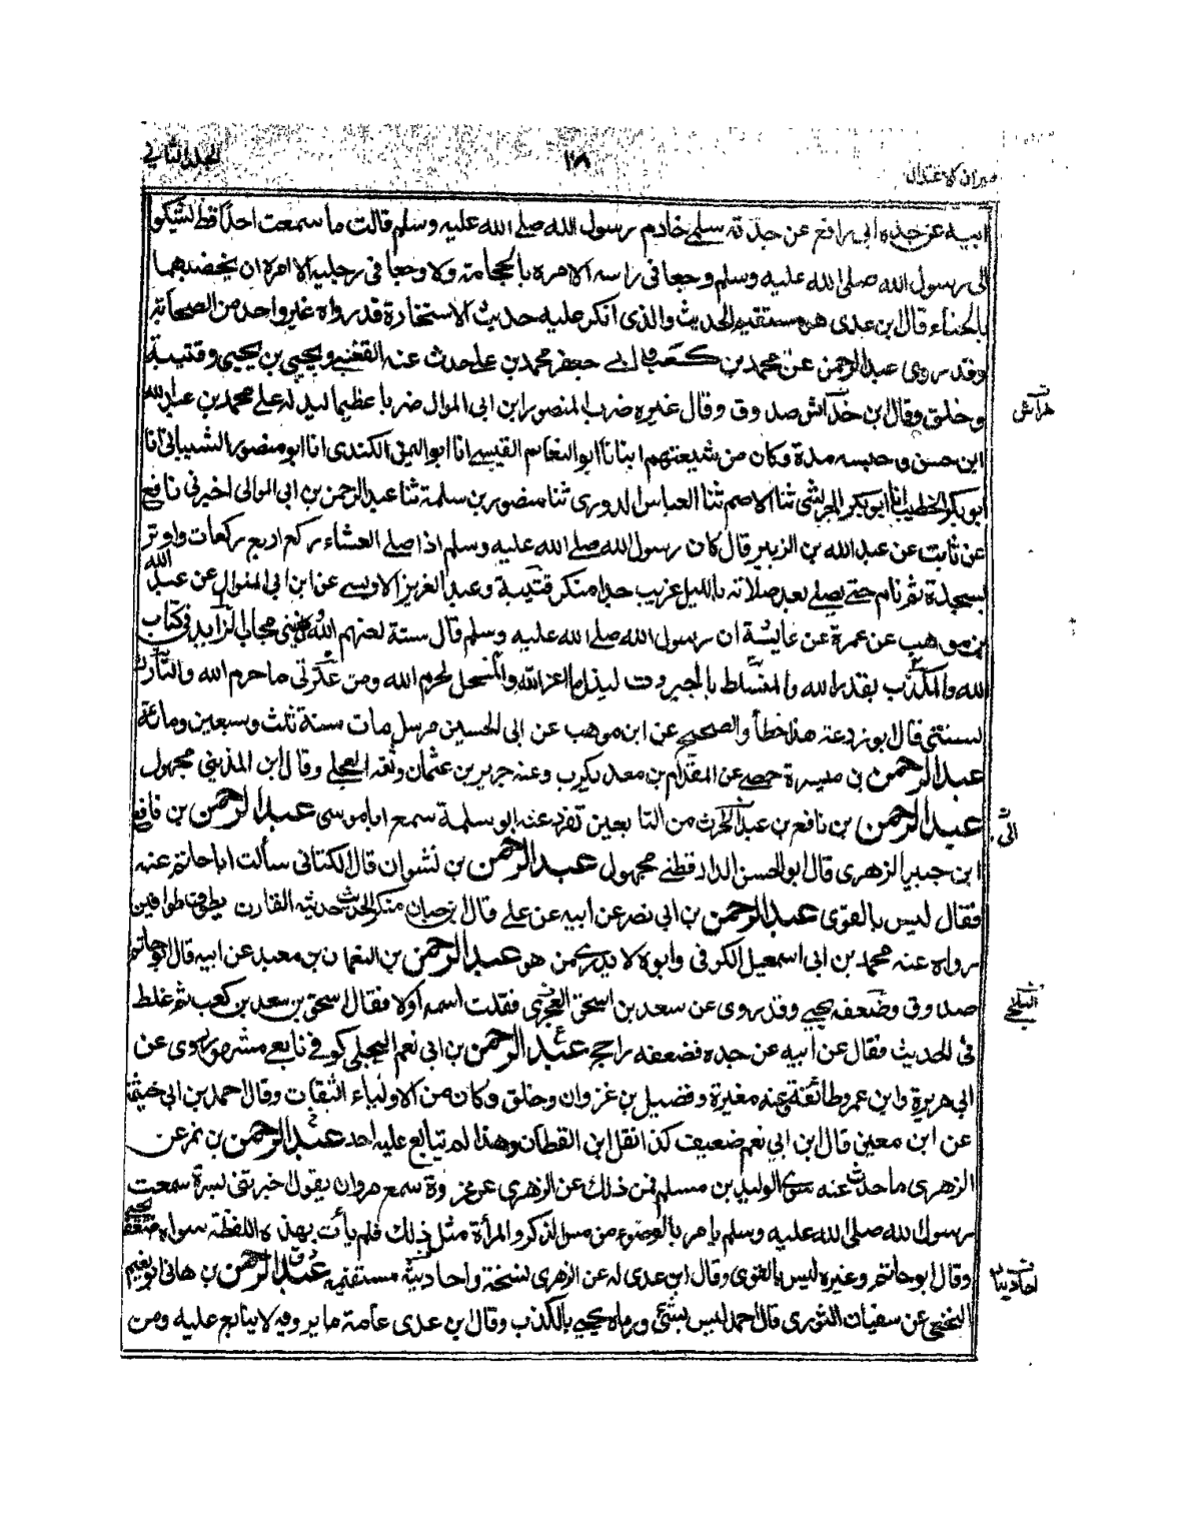 ميزان الاعتدال
١١٨
الجلد الثاني
ابيه عن جده ابي رافع عن جدته سلمى خادم رسول الله صلى الله عليه وسلم قالت ما سمعت احدا قط يشكو
الى رسول الله صلى الله عليه وسلم وجعا في راسه الا امره بالحجامة ولا وجعا في رجليه الا امره ان يخضبهما
بالحناء قال ابن عدى هو مستقيم الحديث والذى انكر عليه حديث الاستخارة قد رواه غير واحد من الصحابة
وقد روى عبدالرحمن عن محمد بن كعب وابي جعفر محمد بن على حدث عنه القعنبي ويحيى بن يحيى وقتيبة
وخلق وقال بن خداش صدوق وقال غيره ضرب المنصور ابن ابي الموال ضربا عظيما ليدله على محمد بن عبدالله
خراش
ابن حسن وحبسه مدة وكان من شيعتهم انبانا ابو الغنائم القيسي انا ابو اليمن الكندى انا ابو منصور الشيباني انا
ابو بكر الخطيب انا ابو بكر الحرشي ثنا الاصم ثنا العباس الدورى ثنا منصور بن سلمة ثنا عبدالرحمن بن ابي الموالى اخبرني نافع
عن ثابت عن عبد الله بن الزبير قال كان رسول الله صلى الله عليه وسلم اذا صلى العشاء ركع اربع ركعات واوتر
بسجدة ثم نام حتى يصلى بعد صلاته بالليل غريب جدا منكر قتيبة وعبد العزيز الاويسى عن ابن ابي الموال عن عبد الله
بن موهب عن عمرة عن عايشة ان رسول الله صلى الله عليه وسلم قال ستة لعنهم الله وكل نبي مجاب الزايد في كتاب
الله والمكذب بقدر الله والمتسلط بالجبروت ليذل ما اعز الله والمستحل لحرم الله ومن عترتي ما حرم الله والتارك
لسنتي قال ابو زرعة هذا خطأ والصحيح عن ابن موهب عن ابي الحسين مرسل مات سنة ثلث وسبعين ومائة
عبدالرحمن بن ميسرة حمصى عن المقدام بن معد يكرب وعنه جرير بن عثمان وثقه العجلى وقال ابن المديني مجهول
عبدالرحمن بن نافع بن عبد الحرث من التابعين تفرد عنه ابو سلمة سمع ابا موسى عبدالرحمن بن نافع
ابن جبير الزهرى قال ابو الحسن الدارقطني مجهول عبدالرحمن بن نشوان قال الكتاني سألت ابا حاتم عنه
فقال ليس بالقوى عبدالرحمن بن ابي نصر عن ابيه عن على قال بن حبان منكر الحديث حديثه القارن يطوف طوافين
رواه عنه محمد بن ابي اسمعيل الكوفي وابوه لا يدرى من هو عبدالرحمن بن النعمان بن معبد عن ابيه قال ابو حاتم
صدوق وضعفه يحيى وقد روى عن سعد بن اسحق العجرى فقلت اسمه اولا فقال اسحق بن سعد بن كعب ثم غلط
في الحديث فقال عن ابيه عن جده فضعفه راجح عبدالرحمن بن ابي نعم البجلى كوفي تابعى مشهور يروى عن
ابي هريرة وابن عمر وطائفة وعنه مغيرة وفضيل بن غزوان وخلق وكان من الاولياء الثقات وقال احمد بن ابي خيثمة
عن ابن معين قال ابن ابي نعم ضعيف كذا نقل ابن القطان وهذا لم يتابع عليه احد عبدالرحمن بن نمر عن
الزهرى ما حدث عنه سوى الوليد بن مسلم فمن ذلك عن الزهرى عن عروة سمع مروان يقول اخبرتني بسرة سمعت
رسول الله صلى الله عليه وسلم يامر بالوضوء من مس الذكر والمرأة مثل ذلك فلم يأت بهذه اللفظة سواه ضعفه يحيى
وقال ابو حاتم وغيره ليس بالقوى وقال ابن عدى له عن الزهرى نسخة واحاديثه مستقيمة عبدالرحمن بن هاني ابو نعيم
النخعي عن سفيان الثورى قال احمد ليس بشئ ورماه يحيى بالكذب وقال ابن عدى عامة ما يرويه لا يتابع عليه ومن